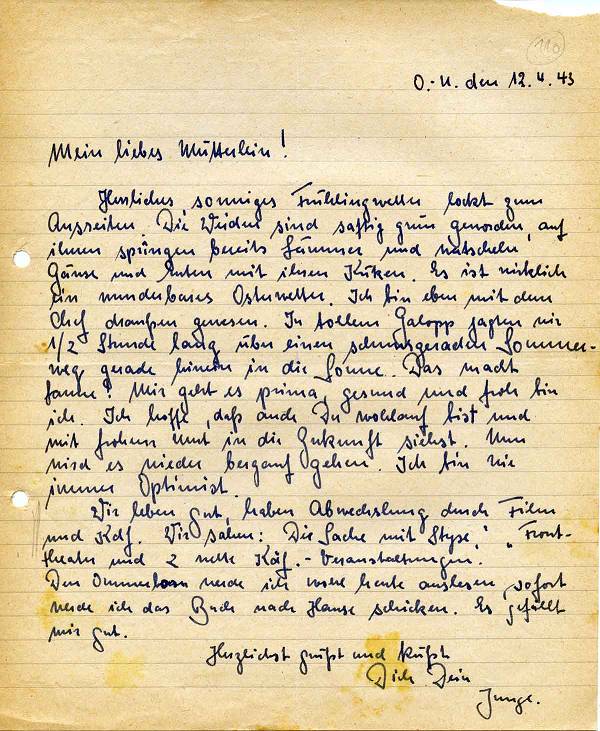 110
O.-U. den 12.4.43
Mein liebes Mütterlein!
Herrliches, sonniges Frühlingwetter lockt zum
Ausreiten. Die Weiden sind saftig grün geworden, auf
ihnen springen bereits Lämmer und watscheln
Gänse und Enten mit ihren Küken. Es ist wirklich
ein wunderbares Osterwetter. Ich bin eben mit dem
Chef draußen gewesen. In tollem Galopp jagten wir
1/2 Stunde lang über einen schnurgeraden Sommer-
weg gerade hinein in die Sonne. Das macht
Laune! Mir geht es prima, gesund und froh bin
ich. Ich hoffe, daß auch Du wohlauf bist und
mit frohem Mut in die Zukunft siehst. Nun
wird es wieder bergauf gehen. Ich bin wie
immer Optimist.
Wir leben gut, haben Abwechslung durch Film
und KdF. Wir sahen: Die Sache mit Styx", "Front-
theater und 2 nette KdF.-Veranstaltungen.
Den werde ich heute auslesen, sofort
werde ich das Buch nach Hause schicken. Es gefällt
mir gut.
Herzlichst grüßt und küßt
Dich Dein
Junge.